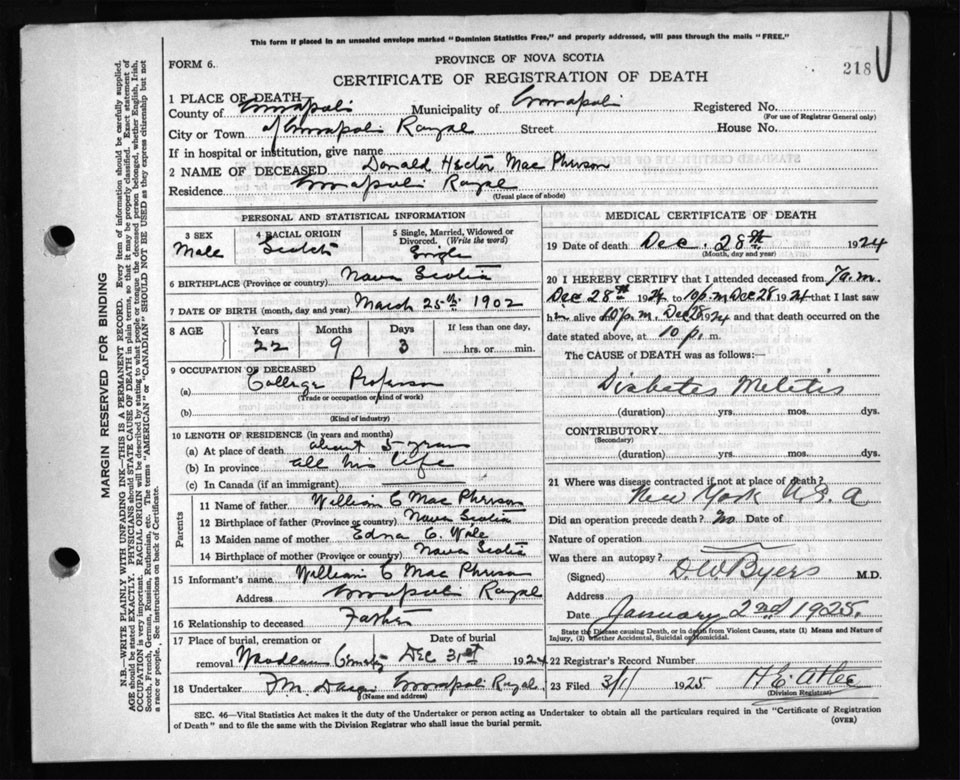 This form if placed in an unsealed envelope marked "Dominion Statistics Free," and properly addressed, will pass through the mails "FREE."
FORM 6.
PROVINCE OF NOVA SCOTIA
218
CERTIFICATE OF REGISTRATION OF DEATH
1 PLACE OF DEATH
County of Annapolis Municipality of Annapolis Registered No.
(For use of Registrar General only)
City or Town of Annapolis Royal Street House No.
If in hospital or institution, give name
2 NAME OF DECEASED Donald Hector MacPherson
Residence Annapolis Royal
(Usual place of abode)
PERSONAL AND STATISTICAL INFORMATION
3 SEX 4 RACIAL ORIGIN 5 Single, Married, Widowed or Divorced. (Write the word)
Male Scotch Single
6 BIRTHPLACE (Province or country) Nova Scotia
7 DATE OF BIRTH (month, day and year) March 25th 1902
8 AGE Years Months Days If less than one day,
22 9 3 hrs. or min.
9 OCCUPATION OF DECEASED
(a) College Professor
(Trade or occupation or kind of work)
(b)
(Kind of industry)
10 LENGTH OF RESIDENCE (in years and months)
(a) At place of death about 5 years
(b) In province all his life
(c) In Canada (if an immigrant)
Parents
11 Name of father William C MacPherson
12 Birthplace of father (Province or country) Nova Scotia
13 Maiden name of mother Edna C.
14 Birthplace of mother (Province or country) Nova Scotia
15 Informant's name William C MacPherson
Address Annapolis Royal
16 Relationship to deceased Father
17 Place of burial, cremation or Date of burial
removal Woodlawn Cemetery Dec 31st 1924
18 Undertaker F.M. Annapolis Royal
(Name and address)
MEDICAL CERTIFICATE OF DEATH
19 Date of death Dec. 28th 1924
(Month, day and year)
20 I HEREBY CERTIFY that I attended deceased from 7a.m.
Dec 28th 1924 to 10p.m Dec 28 1924 that I last saw
him alive 10p.m. Dec 28 1924 and that death occurred on the
date stated above, at 10 p.m.
The CAUSE of DEATH was as follows:—
Diabetes Melitis
(duration) yrs. mos. dys.
CONTRIBUTORY
(Secondary)
(duration) yrs. mos. dys.
21 Where was disease contracted if not at place of death?
New York U.S.A.
Did an operation precede death? No Date of
Nature of operation
Was there an autopsy?
(Signed) D.W. Byers M.D.
Address
Date January 2nd 1925.
State the Disease causing Death, or in death from Violent Causes, state (1) Means and Nature of
Injury, (2) whether Accidental, Suicidal or Homicidal.
22 Registrar's Record Number
23 Filed 3/1/ 1925 H.E. Atlee
(Division Registrar)
SEC. 46—Vital Statistics Act makes it the duty of the Undertaker or person acting as Undertaker to obtain all the particulars required in the "Certificate of Registration
of Death" and to file the same with the Division Registrar who shall issue the burial permit.
(OVER)
MARGIN RESERVED FOR BINDING
N.B.—WRITE PLAINLY WITH UNFADING INK—THIS IS A PERMANENT RECORD. Every item of information should be carefully supplied.
AGE should be stated EXACTLY. PHYSICIANS should STATE CAUSE OF DEATH in plain terms, so that it may be properly classified. Exact statement of
OCCUPATION is very important. RACIAL ORIGIN will be described by stating to what people or tongue the deceased person belonged, whether English, Irish,
Scotch, French, German, Russian, Ruthenian, etc. The terms "AMERICAN" or "CANADIAN" SHOULD NOT BE USED as they express citizenship but not
a race or people. See instructions on back of Certificate.